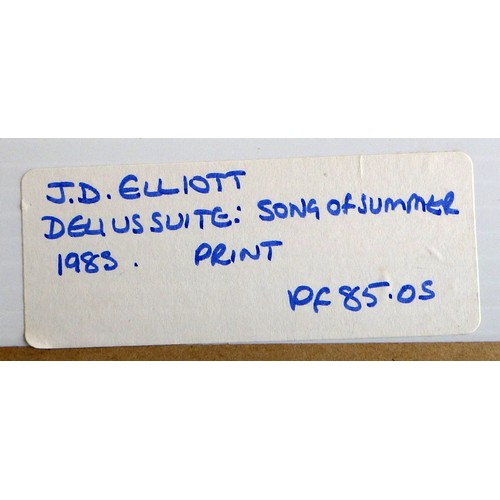 J.D. ELLIOTT
DELIUS SUITE: SONG OF SUMMER
1983. PRINT
PF 85.05